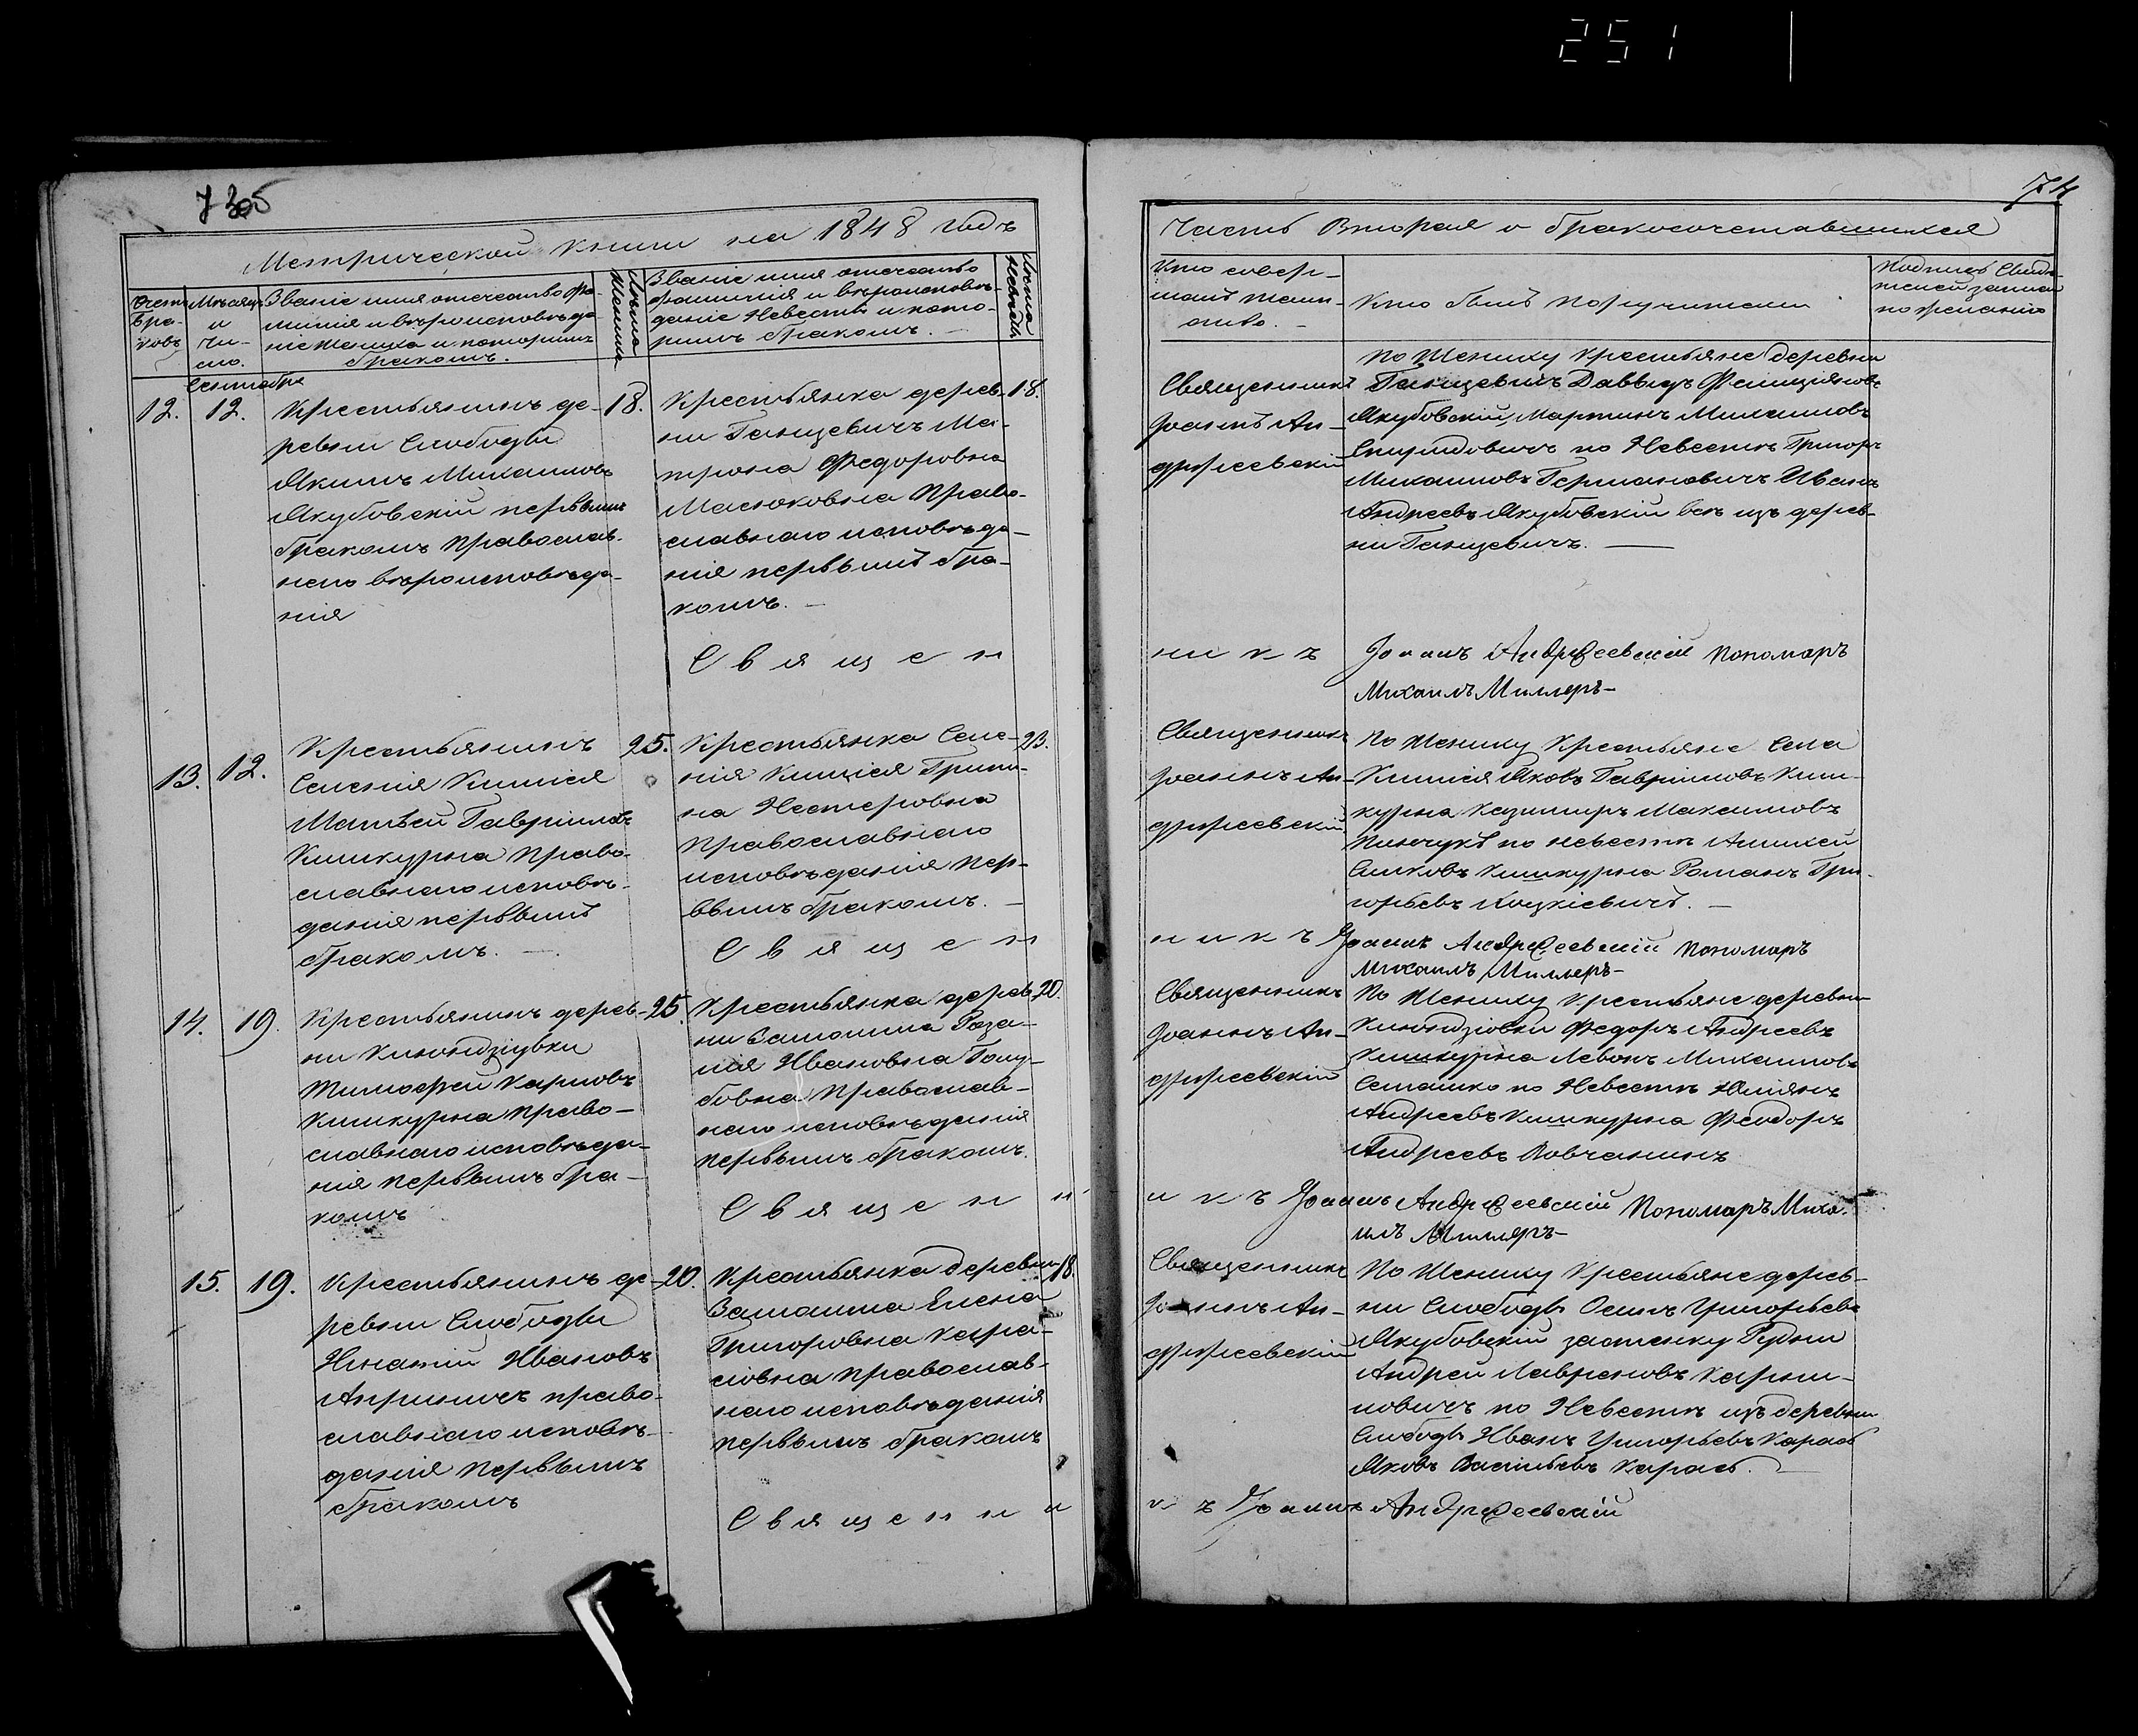 251
735
74
Метрической книги на 1848 годъ
Часть Вторая о бракосочетавшихся
Счетъ
бра-
ковъ
Мѣсяцъ
и
чи-
сло.
Званіе имя отечество фа-
милія и вѣроисповѣда-
ніе жениха и которымъ
бракомъ.
Лѣта
жениха
Званіе имя отечество
фамилія и вѣроисповѣ-
даніе Невесты и кото-
рымъ бракомъ. —
Лѣта
Невесты
Кто совер-
шалъ таин-
ство. —
Кто былъ поручители
Подпись Свидѣ-
телей записи
по желанію
Сентября
12.
12.
Крестьянинъ де-
ревни Слободы
Якимъ Михаиловъ
Якубовскій первымъ
бракомъ православ-
наго вѣроисповѣда-
нія
18.
Крестьянка дерев-
ни Ганцевичъ Ма-
трона Федоровна
Масюковна право-
славнаго исповѣда-
нія первымъ бра-
комъ. —
18.
Священникъ
Іоаннъ Ан-
држеевскій
По Жениху крестьяне деревни
Ганцевичъ Давыдъ
Якубовскій, Мартинъ Михаиловъ
Спиридовичъ по Невестѣ Григоръ
Михаиловъ Германовичъ Иванъ
Андреевъ Якубовскій всѣ изъ дерев-
ни Ганцевичъ. —
Священ
никъ Іоаннъ Андржеевскій Пономаръ
Михаилъ Миллеръ—
13.
12.
Крестьянинъ
Селенія
Матвей Гавріиловъ
Кишкурна право-
славнаго исповѣ-
данія первымъ
бракомъ. —
25.
Крестьянка Селе-
нія Грипи-
на Нестеровна
православнаго
исповѣданія пер-
вымъ бракомъ. —
23.
Священникъ
Іоаннъ Ан-
држеевскій
По Жениху Крестьяне Села
Яковъ Гавріиловъ Киш-
курна Казимиръ Максимовъ
Пинчукъ по невестѣ
Кишкурна Романъ Гри-
горьевъ —
Священ
никъ Іоаннъ Андржеевскій Пономаръ
Михаилъ Миллеръ—
14.
19.
Крестьянинъ дерев-
ни
Тимофей Карповъ
Кишкурна право-
славнаго исповѣда-
нія первымъ бра-
комъ
25.
Крестьянка дерев-
ни Роза-
лія Ивановна Голу-
бовна Православ-
наго исповѣданія
первымъ бракомъ.
20.
Священникъ
Іоаннъ Ан-
држеевскій
По Жениху крестьяне деревни
Федоръ Андреевъ
Кишкурна Левонъ Михаиловъ
Сташко по Невестѣ Юліянъ
Андреевъ Кишкурна Феодоръ
Андреевъ Вовчанинъ
Священн
икъ Іоаннъ Андржеевскій Пономаръ Миха-
илъ Миллеръ—
15.
19.
Крестьянинъ де-
ревни Слободы
Игнатій Ивановъ
право-
славнаго исповѣ-
данія первымъ
бракомъ
20.
Крестьянка деревни
Елена
Григоровна Кара-
сіовна православ-
наго исповѣданія
первымъ бракомъ
18.
Священникъ
Іоаннъ Ан-
држеевскій
По Жениху Крестьяне дерев-
ни Слободы Осипъ Григорьевъ
Якубовскій застенку Рудни
Андрей Лавреновъ Карпи-
новичъ по Невестѣ изъ деревни
Слободы Иванъ Григорьевъ Карась
Яковъ Васильевъ Карась. —
Священни
къ Іоаннъ Андржеевскій